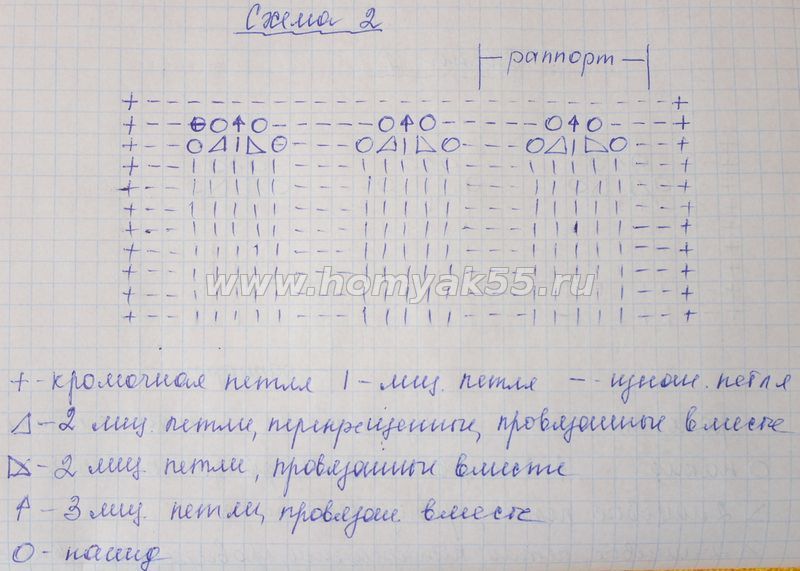 Схема 2
раппорт
+ - - - - - - - - - - - - - - - - - - - - - - - - - +
+ - - O O ↑ O - - - - - O ↑ O - - - - - O ↑ O - - - +
+ - - O ⊿ I ◺ O - - - O ⊿ I ◺ O - - - O ⊿ I ◺ O - - +
+ - - I I I I I - - - I I I I I - - - I I I I I - - +
+ - - I I I I I - - - I I I I I - - - I I I I I - - +
+ - - I I I I I - - - I I I I I - - - I I I I I - - +
+ - - I I I I I - - - I I I I I - - - I I I I I - - +
+ - - I I I I I - - - I I I I I - - - I I I I I - - +
+ - - I I I I I - - - I I I I I - - - I I I I I - - +
+ - - I I I I I - - - I I I I I - - - I I I I I - - +
+ - - I I I I I - - - I I I I I - - - I I I I I - - +
www.homyak55.ru
+ - кромочная петля I - лиц. петля - - изнан. петля
⊿ - 2 лиц. петли, перекрещенные, провязанные вместе
◺ - 2 лиц. петли, провязанные вместе
↑ - 3 лиц. петли, провязан. вместе
O - накид